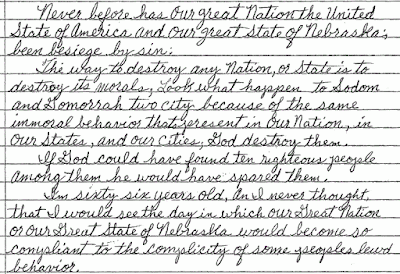 Never before has Our great Nation the United
State of America and Our great State of Nebraska,
been besiege by sin:
The way to destroy any Nation, or State is to
destroy its morals, Look what happen to Sodom
and Gomorrah two city because of the same
immoral behavior that present in Our Nation, in
Our States, and our Cities; God destroy them.
If God could have found ten righteous people
among them he would have spared them.
I'm sixty six years old, an I never thought,
that I would see the day in which our Great Nation
or Our Great State of Nebraska would become so
compliant to the complicity of some peoples lewd
behavior.